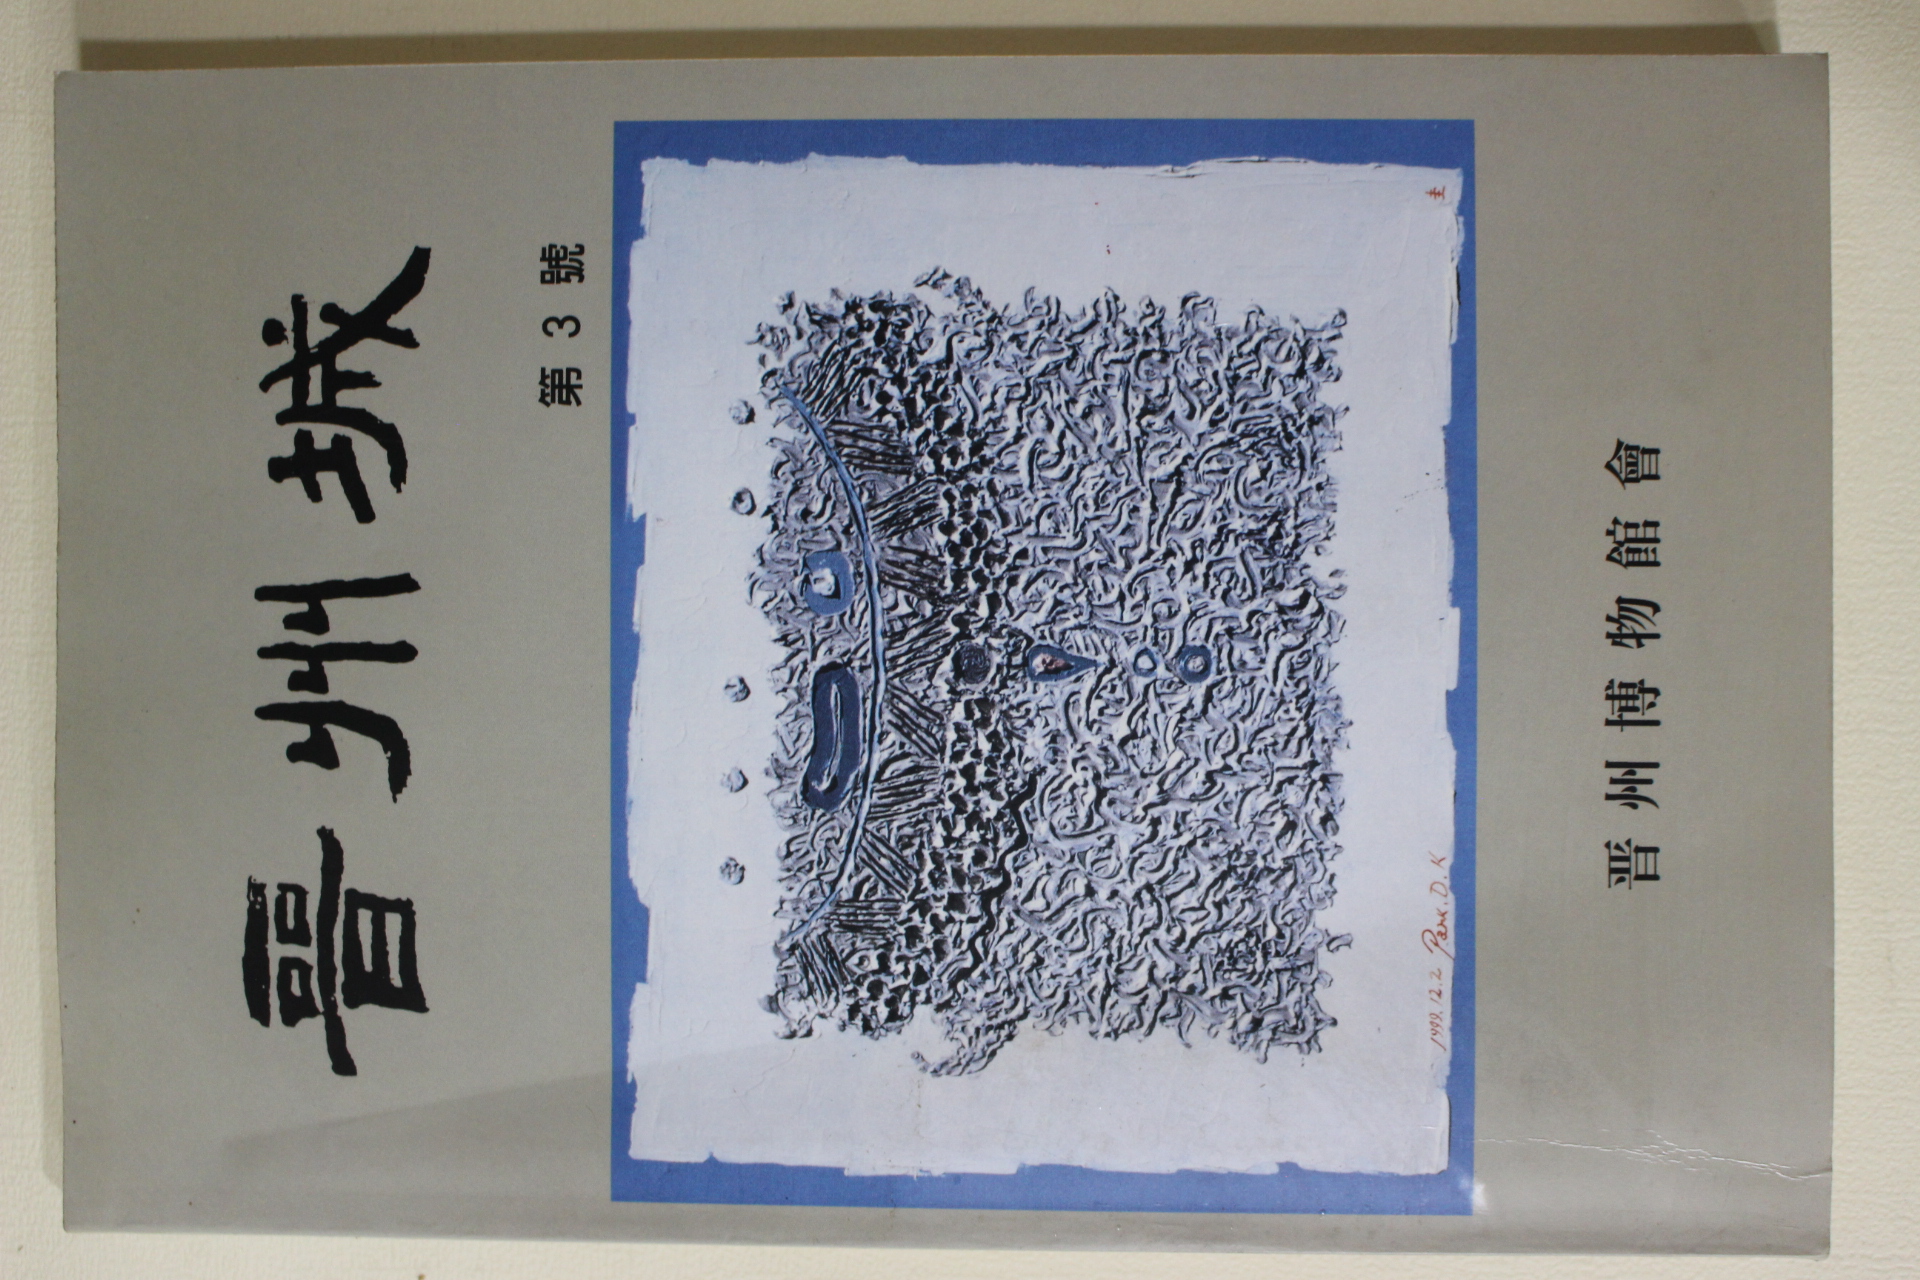 晋州城
第 3 號
圭
1999. 12. 2 Park. D. K
晋州博物館會